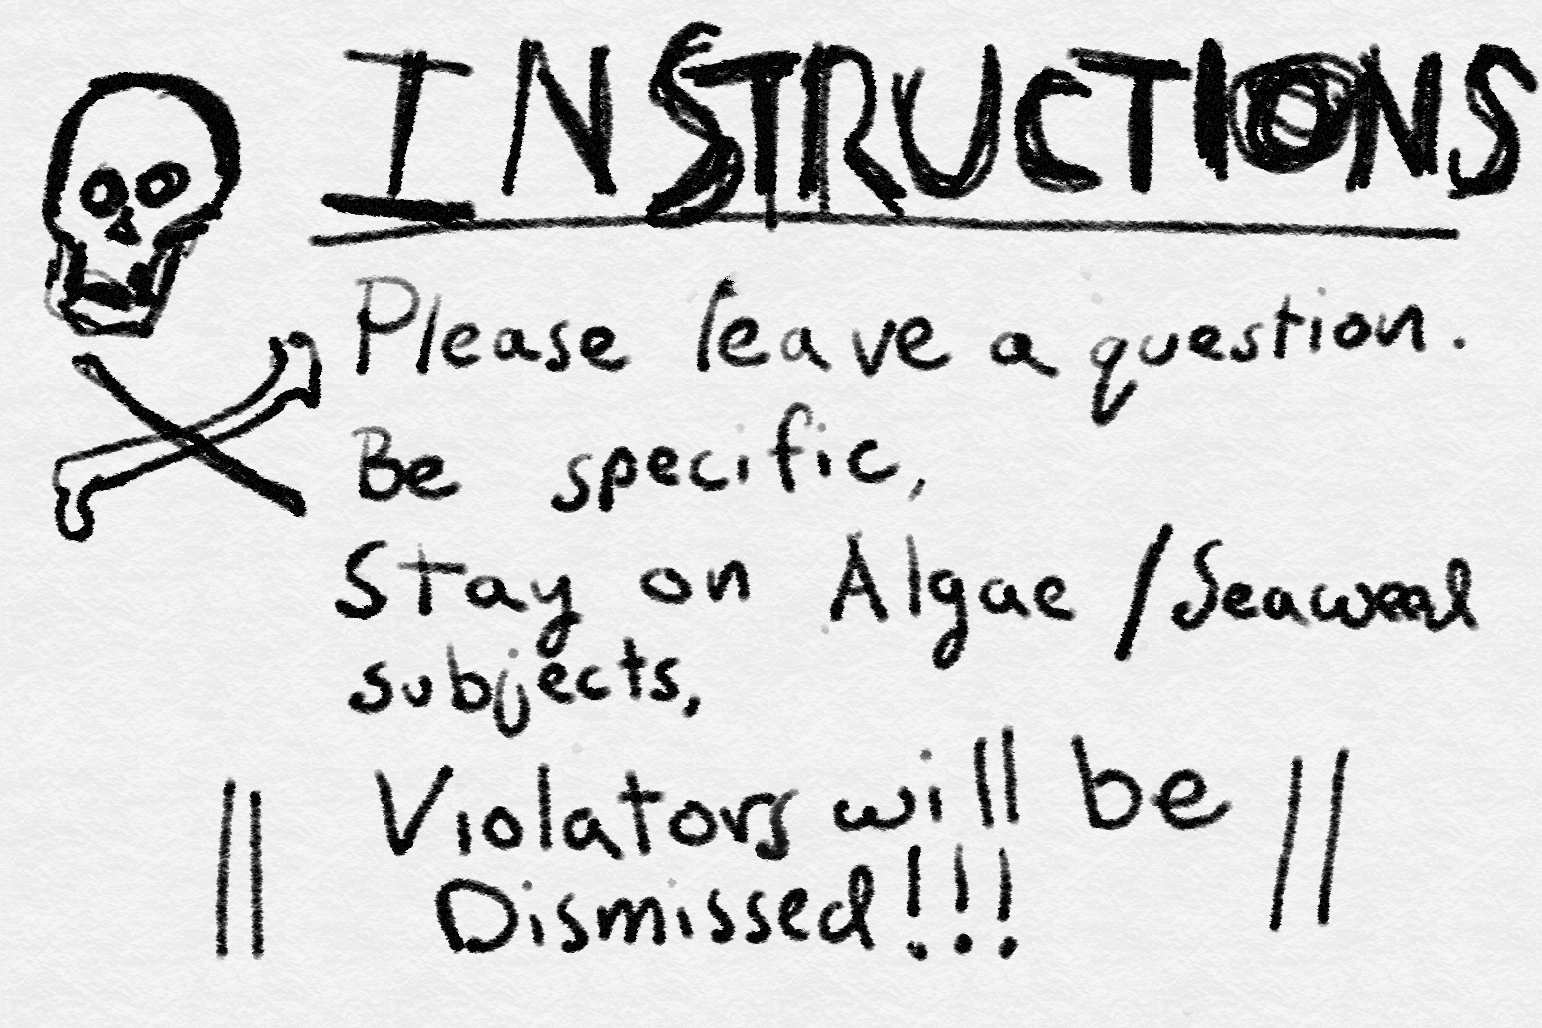 INSTRUCTIONS
Please leave a question.
Be specific,
Stay on Algae / Seaweed
subjects,
Violators will be
Dismissed!!!